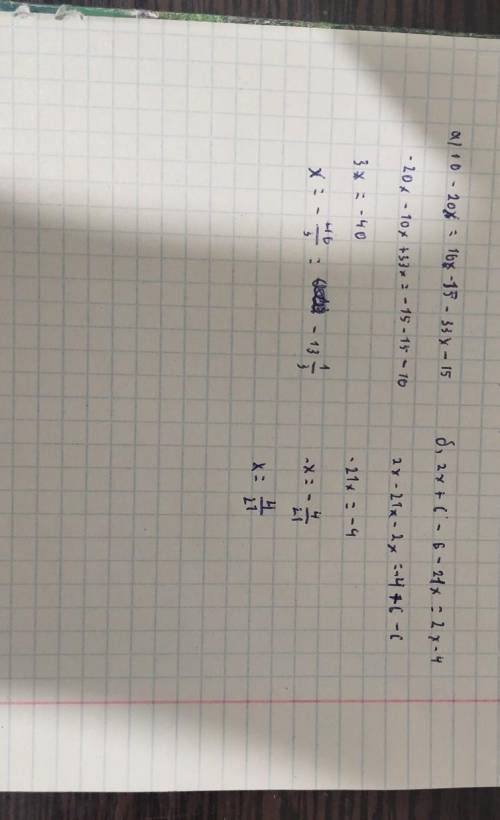 а) 10 - 20x = 10x - 15 - 33x - 15
-20x - 10x + 33x = -15 - 15 - 10
3x = -40
x = - 40/3 = - 13 1/3
б) 2x + 6 - 6 - 21x = 2x - 4
2x - 21x - 2x = -4 + 6 - 6
-21x = -4
-x = - 4/21
x = 4/21